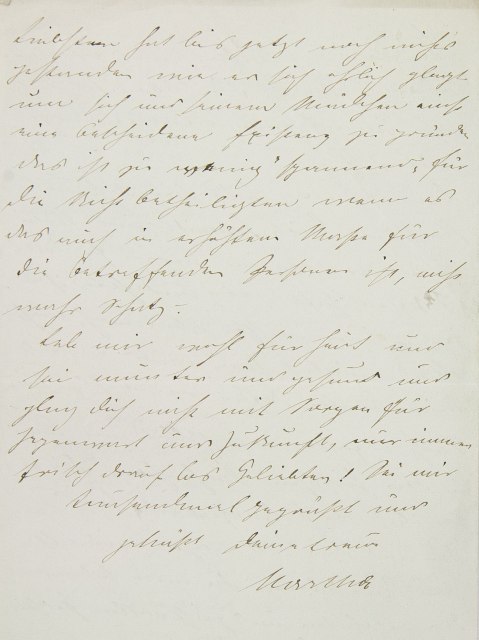 liebsten hat bis jetzt noch nichts
gestanden wie er sich ehrlich plagt
um sich und seinem Mädchen auch
eine bescheidene Existenz zu gründen
das ist zu wenig "spannend" für
die Nichtbetheiligten wenn es
das auch in erhöhtem Maße für
die betreffenden Personen ist, nicht
wahr Schatz.
Leb mir wohl für heut und
sei munter und gesund und
plag dich nicht mit Sorgen für
Gegenwart und Zukunft, nur immer
frisch drauf los Geliebter! Sei mir
tausendmal gegrüßt und
geküßt deine treue
Martha